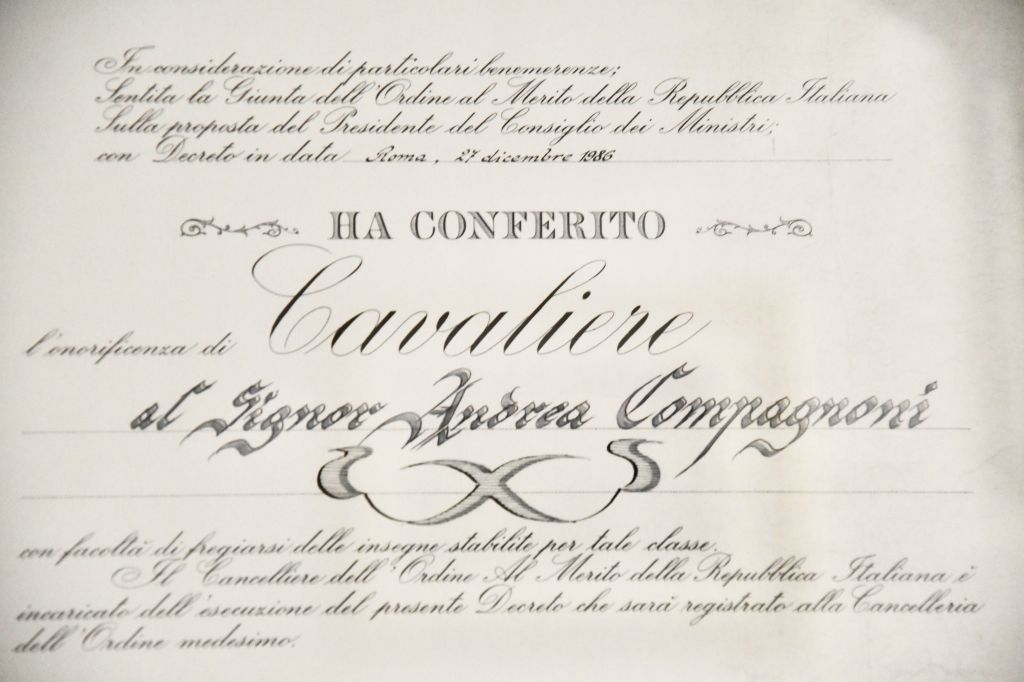 In considerazione di particolari benemerenze;
Sentita la Giunta dell'Ordine al Merito della Repubblica Italiana
Sulla proposta del Presidente del Consiglio dei Ministri;
con Decreto in data Roma, 27 dicembre 1986
HA CONFERITO
l'onorificenza di Cavaliere
al Signor Andrea Compagnoni
con facoltà di fregiarsi delle insegne stabilite per tale classe.
Il Cancelliere dell'Ordine Al Merito della Repubblica Italiana è
incaricato dell'esecuzione del presente Decreto che sarà registrato alla Cancelleria
dell'Ordine medesimo.